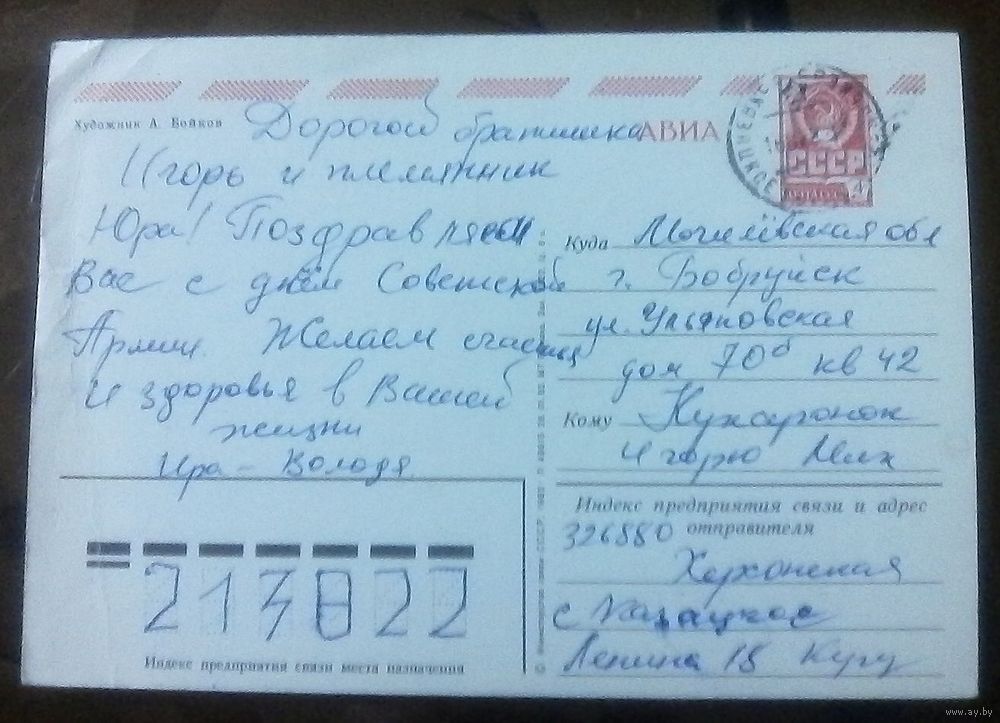 Художник А. Бойков
АВИА
СССР
Дорогой братишка
Игорь и племянник
Юра! Поздравляем
Вас с днём Советской
Армии. Желаем счастья
и здоровья в Вашей
жизни
Ира - Володя
Куда Могилёвская обл
г. Бобруйск
ул. Ульяновская
дом 70б кв 42
Кому
Игорю Мих
Индекс предприятия связи и адрес
отправителя
326880
Херсонская
с Казацкое
Ленина 18
213822
Индекс предприятия связи места назначения
www.ay.by